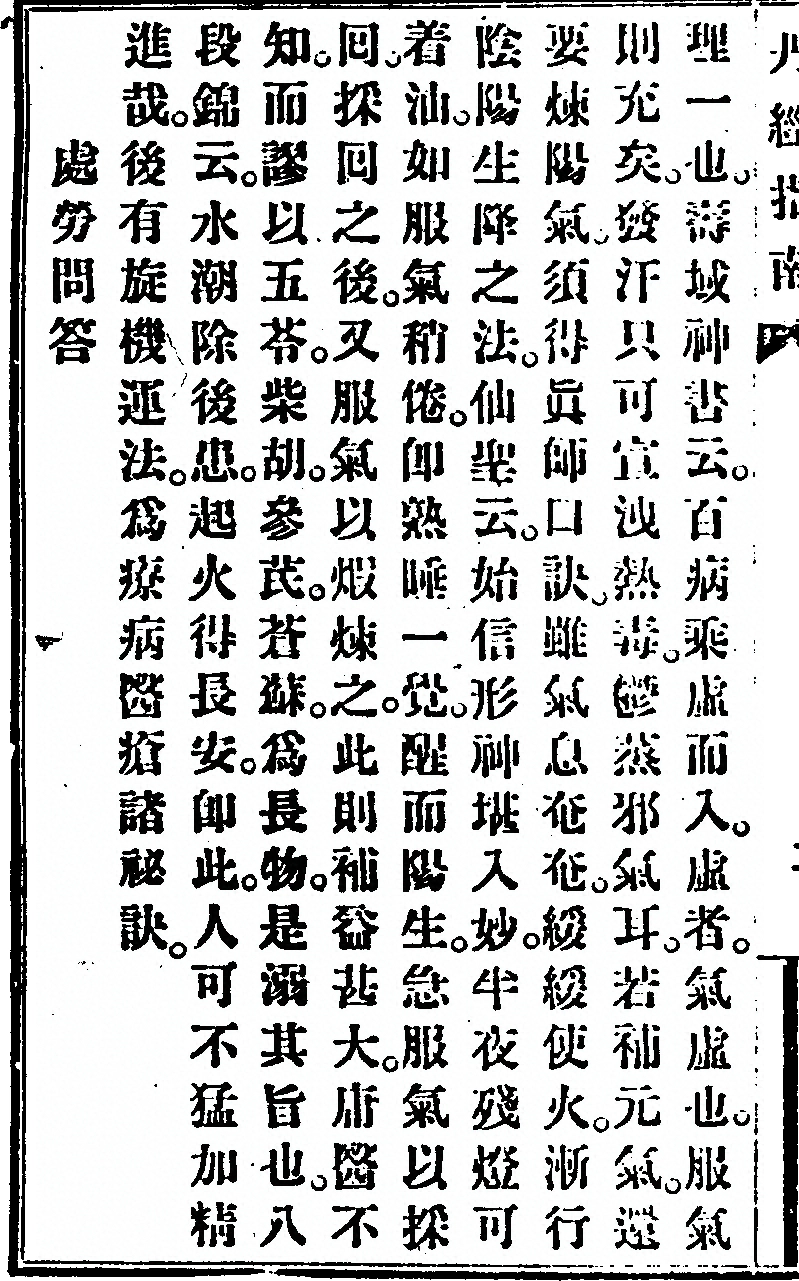 丹經指南
理一也。壽域神書云。百病乘虛而入。虛者。氣虛也。服氣
則充矣。發汗只可宣洩熱毒。鬱蒸邪氣耳。若補元氣。還
要煉陽氣。須得眞師口訣。雖氣息奄奄。緩緩使火。漸行
陰陽生降之法。仙聖云。始信形神堪入妙。半夜殘燈可
着油。如服氣稍倦。卽熟睡一覺。醒而陽生。急服氣以採
囘。採囘之後。又服氣以煆煉之。此則補益甚大。庸醫不
知。而謬以五苓。柴胡。參茋。蒼蘇。爲長物。是溺其旨也。八
段錦云。水潮除後患。起火得長安。卽此。人可不猛加精
進哉。後有旋機運法。爲療病醫瘡諸祕訣。
處勞問答